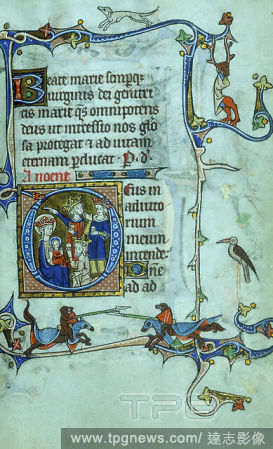 Beate marie semper
virginis dei genitri
cis marie qs omnipotens
deus ut intercessio nos glo
sa protegat & ad vitam
eternam perducat. P. d.
A noene
Deus in
adiuto
rium
meum
intende
Dne
ad ad
TPG
www.tpgnews.com/ 達志影像